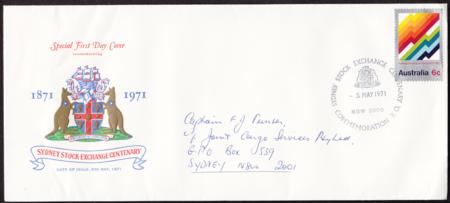 Special First Day Cover
commemorating
1871 1971
SYDNEY STOCK EXCHANGE CENTENARY
DATE OF ISSUE, 5TH MAY, 1971
Australia 6c
SYDNEY STOCK EXCHANGE CENTENARY
- 5 MAY 1971
NSW 2000
COMMEMORATION P.O.
Captain F J
Joint Cargo Services
G.P.O Box 539
SYDNEY NSW 2001